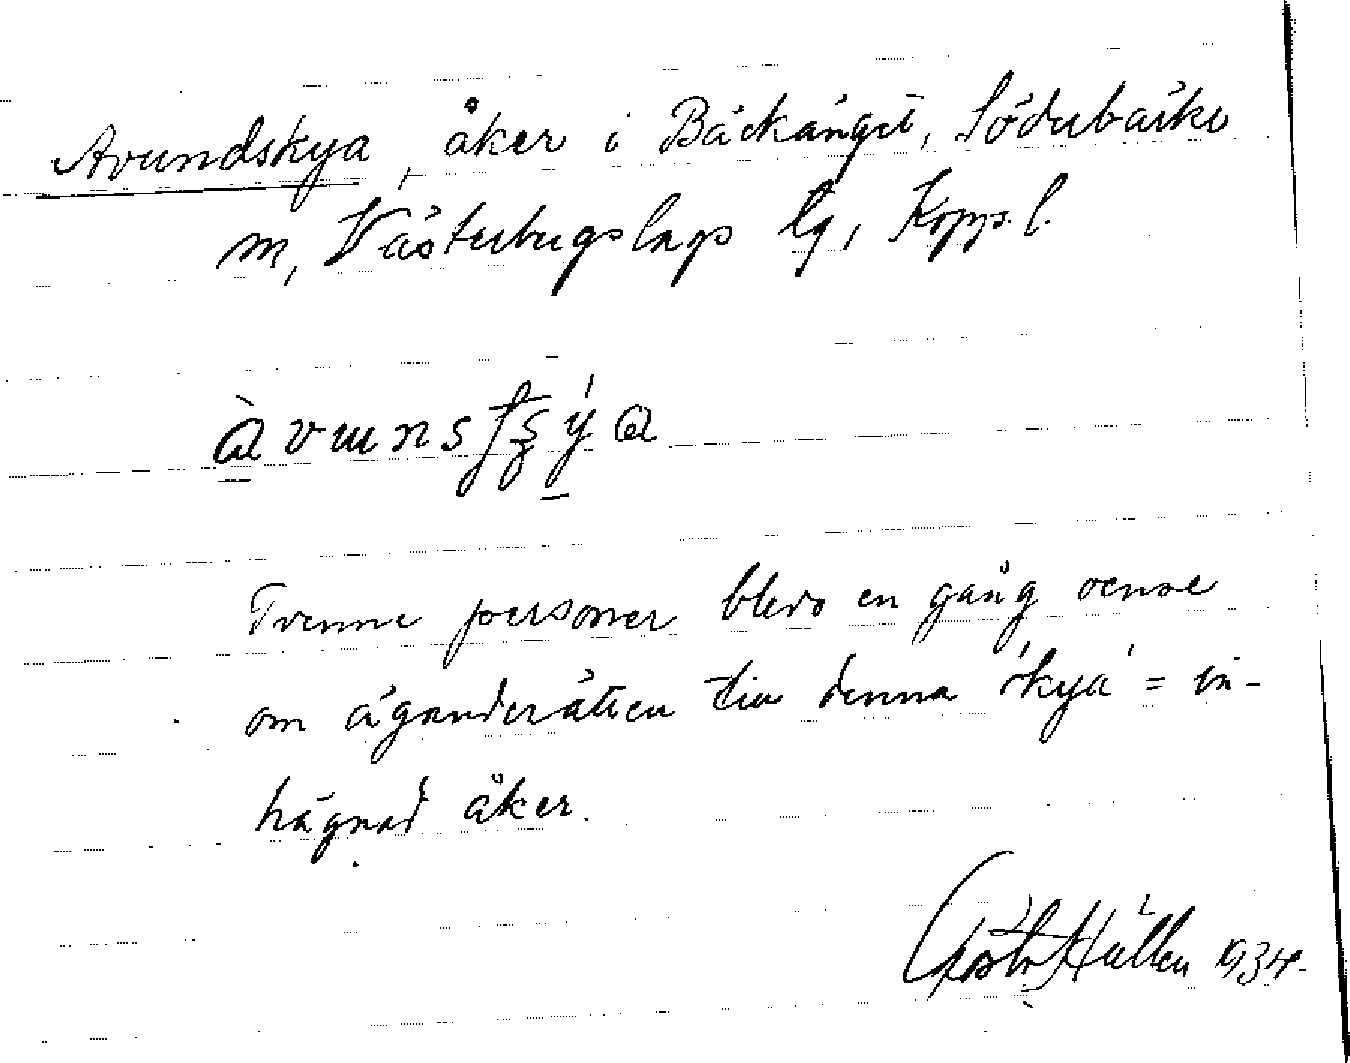 Avundskya, åker i Bäckänget, Söderbärke
m, Västerbergslags lg, Kopp. l.
Tvenne personer blevo en gång oense
om äganderätten till denna 'kya' = in-
hägnad åker.
Gösta Hällen 1934.